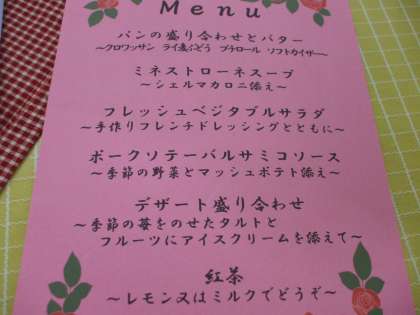 Menu
パンの盛り合わせとバター
～クロワッサン ライ麦ぶどう プチロール ソフトカイザー～
ミネストローネスープ
～シェルマカロニ添え～
フレッシュベジタブルサラダ
～手作りフレンチドレッシングとともに～
ポークソテーバルサミコソース
～季節の野菜とマッシュポテト添え～
デザート盛り合わせ
～季節の苺をのせたタルトと
フルーツにアイスクリームを添えて～
紅茶
～レモン又はミルクでどうぞ～